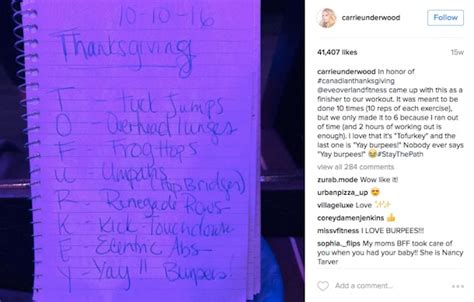 10-10-16
Thanksgiving
T - Tuck Jumps
O - Overhead Lunges
F - Froghops
U - (Hip Bridges)
R - Renegade Rows
K - Kick Touchdown
E - Eccentric Abs
Y - Yay!! Burpees!
carrieunderwood
Follow
41,407 likes
15w
carrieunderwood In honor of
#canadianthanksgiving
@eveoverlandfitness came up with this as a
finisher to our workout. It was meant to be
done 10 times (10 reps of each exercise),
but we only made it to 6 because I ran out
of time (and 2 hours of working out is
enough). I love that it's "Tofurkey" and the
last one is "Yay burpees!" Nobody ever says
"Yay burpees!" 😂#StayThePath
view all 284 comments
zurab.mode Wow like it!
urbanpizza_up 😍
villageluxe Love ✨
coreydamenjenkins 👍
missvfitness I LOVE BURPEES!!!
sophia._flips My moms BFF took care of
you when you had your baby!! She is Nancy
Tarver
Add a comment...